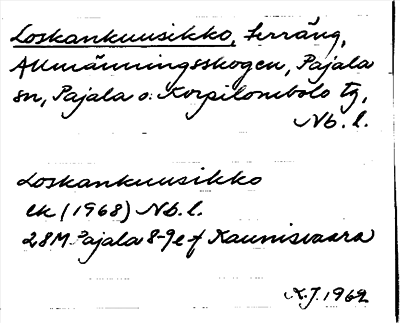 Loskankuusikko, terräng,
Allmänningsskogen, Pajala
sn, Pajala o. Korpilombolo tg,
Nb. l.
Loskankuusikko
ek (1968) Nb. l.
28M Pajala 8-9 e f Kaunisvaara
K.J. 1969